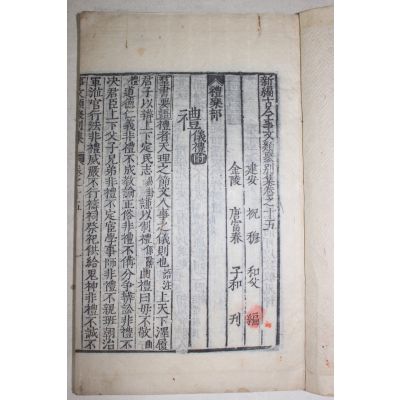 新編古今事文類聚別集卷之十五
建安 祝穆 和父 編
金陵 唐富春 子和 刊
禮樂部
禮 儀禮附
群書要語禮者天理之節文人事之儀則也 上天下澤履
君子以辯上下定民志 謙以制禮 禮曰毋不敬曲
禮道德仁義非禮不成教訓正俗非禮不備分爭辨訟非禮不
決君臣上下父子兄弟非禮不定宦學事師非禮不親班朝治
軍涖官行法非禮威嚴不行禱祠祭祀供給鬼神非禮不誠不
事文類聚別集 卷之十五